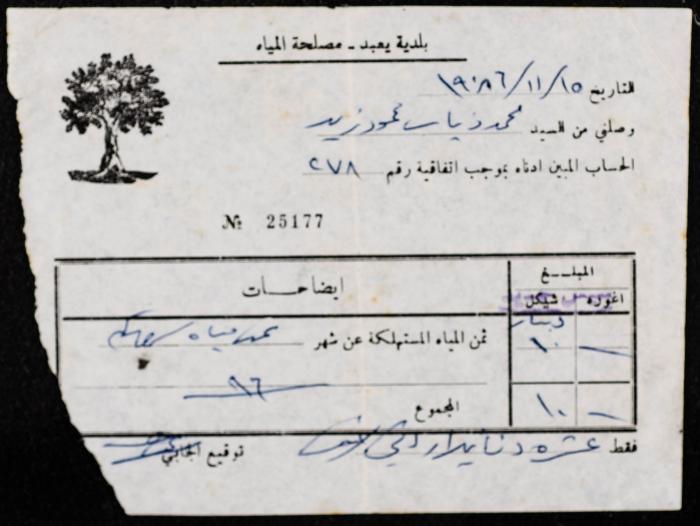 بلدية يعبد - مصلحة المياه
التاريخ ١٥/١١/١٩٨٦
وصلني من السيد محمد ذياب محمود زيد
الحساب المبين ادناه بموجب اتفاقية رقم ٢٧٨
№ 25177
المبلــغ
ايضاحــات
اغورة شيكل
دينار
ثمن المياه المستهلكة عن شهر
١٠ —
٩٦
المجموع
١٠ —
فقط عشرة دنانير اردني
توقيع الجابي